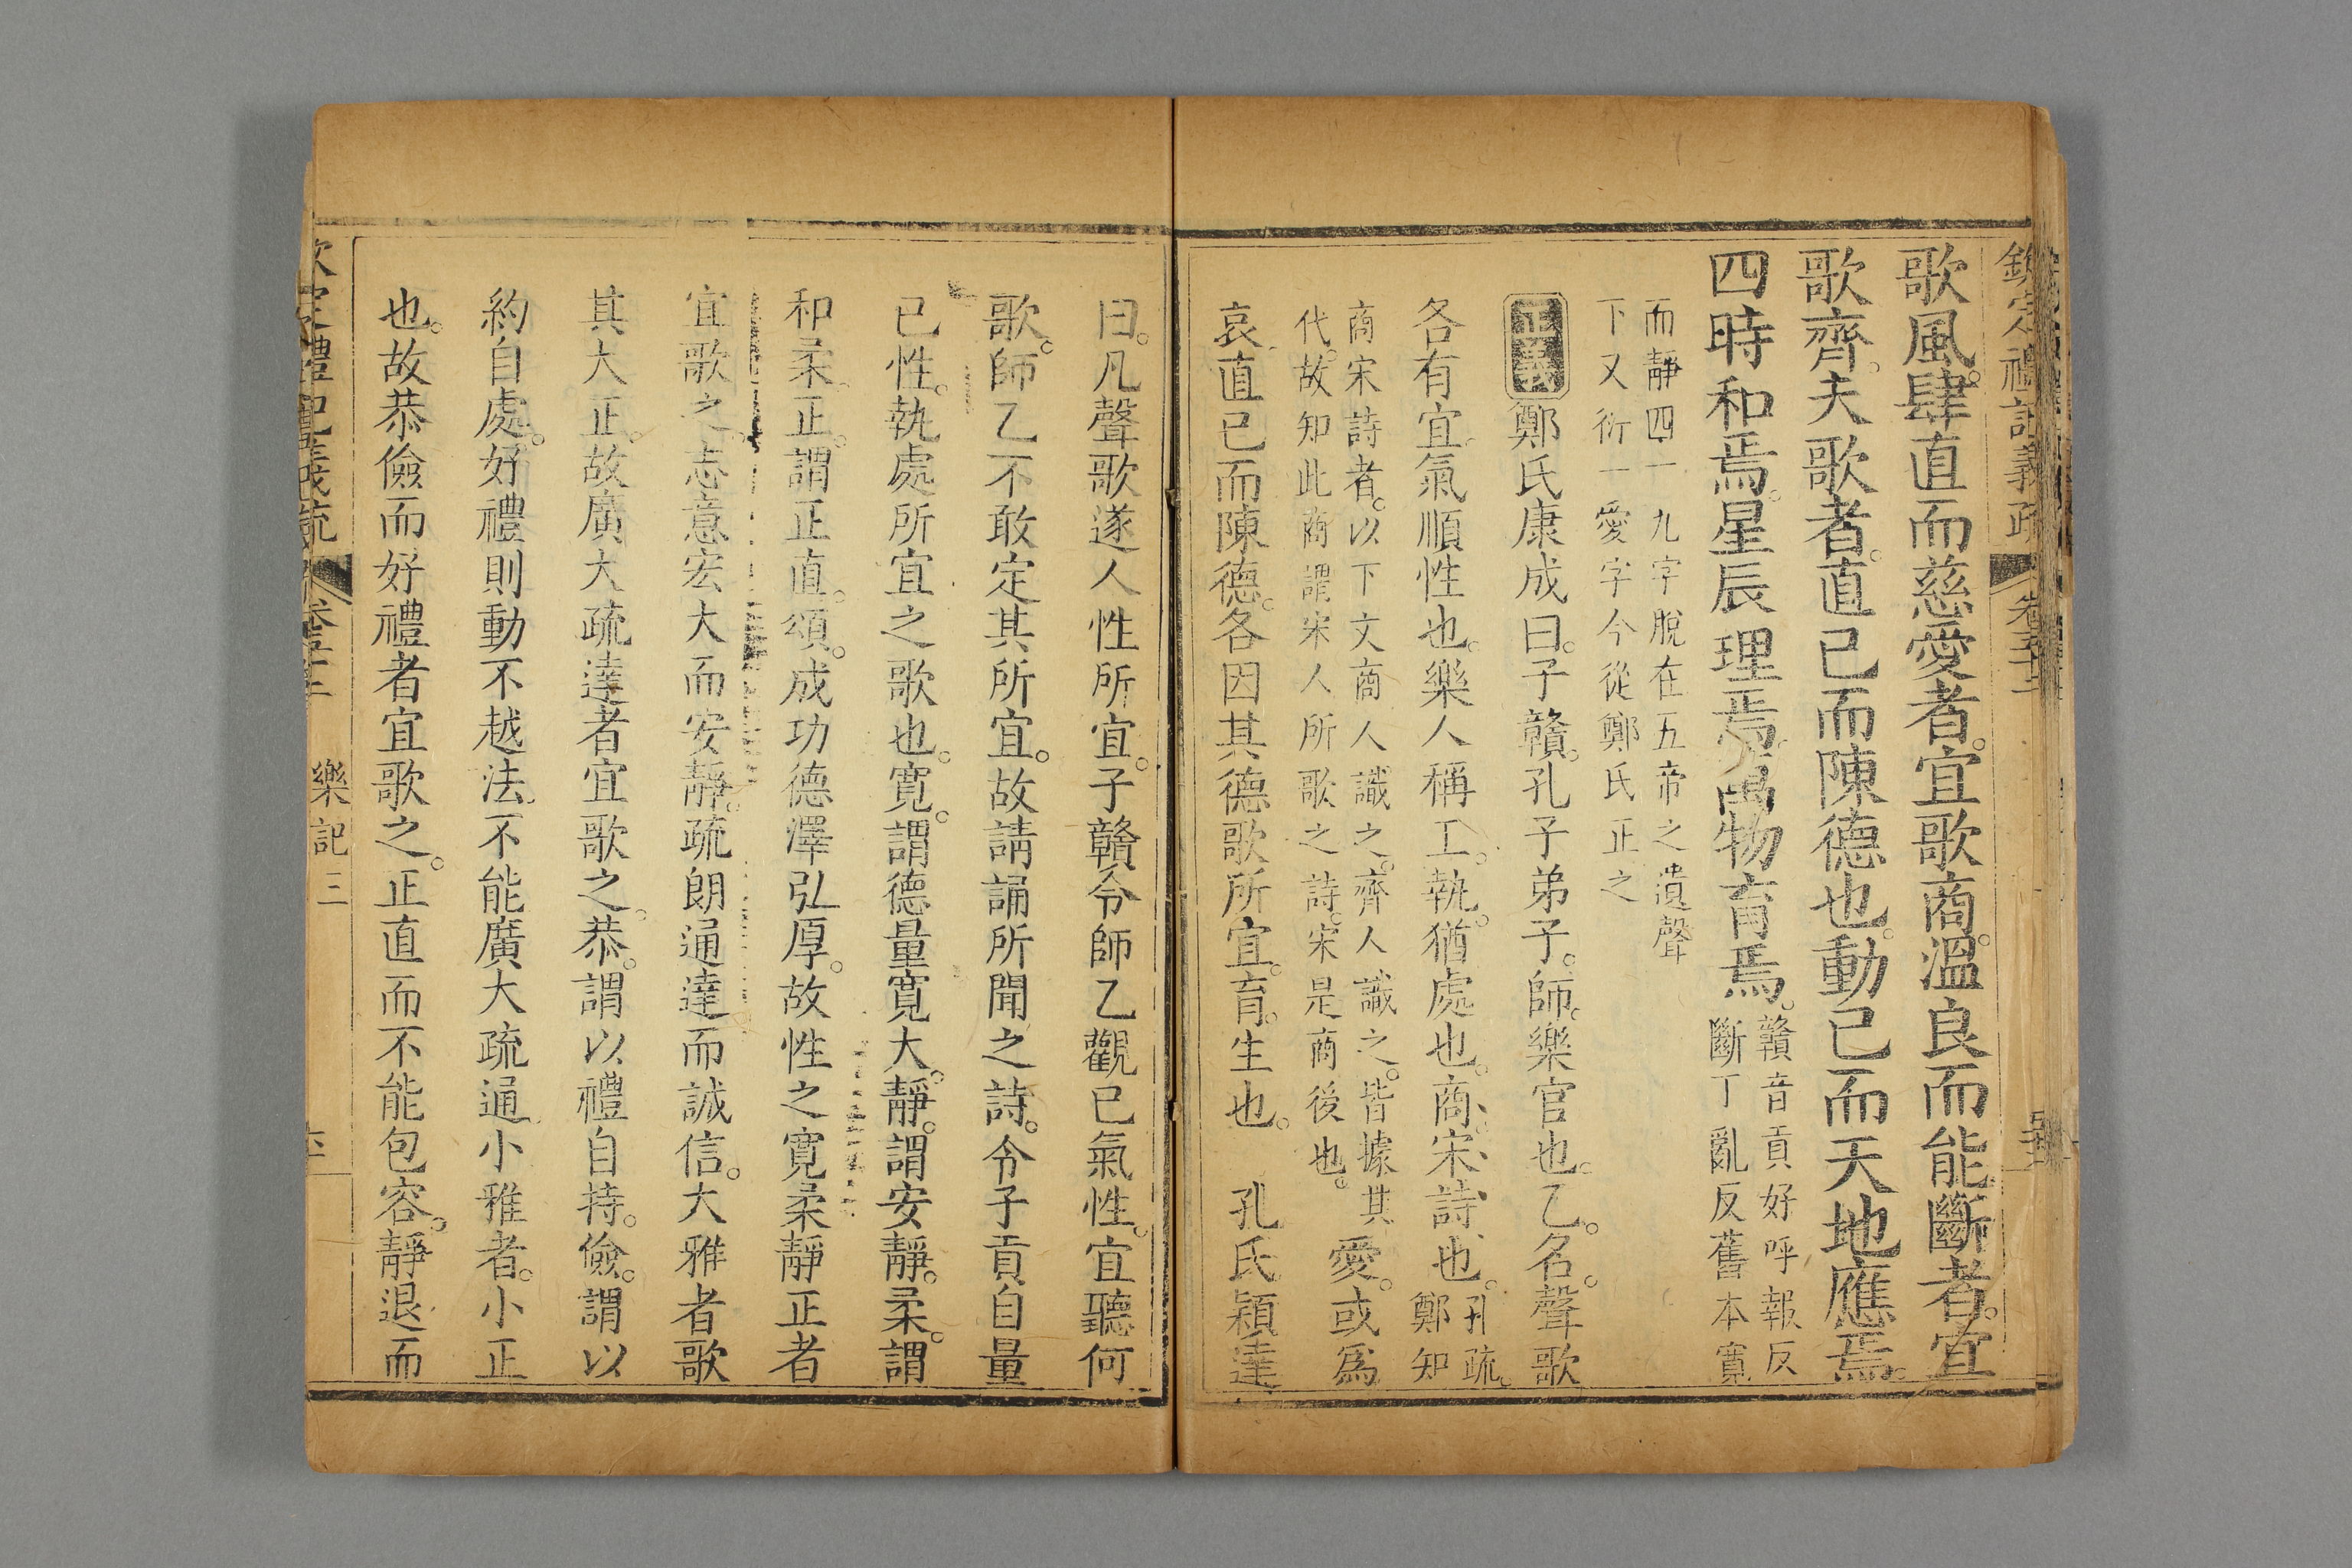 欽定禮記義疏 卷五十二
歌風。肆直而慈愛者。宜歌商。溫良而能斷者。宜
歌齊。夫歌者。直己而陳德也。動己而天地應焉。
四時和焉。星辰理焉。萬物育焉。
贛音貢好呼報反
斷丁亂反舊本寬
而靜四一九字脫在五帝之遺聲
下又衍一愛字今從鄭氏正之
正義 鄭氏康成曰。子贛。孔子弟子。師。樂官也。乙。名。聲歌
各有宜。氣順性也。樂人稱工。執。猶處也。商。宋詩也。
孔疏。
鄭知
商宋詩者。以下文商人識之。齊人識之。皆據其
代。故知此商謂宋人所歌之詩。宋是商後也。
愛。或爲
哀。直己而陳德。各因其德歌所宜。育。生也。 孔氏穎達
曰。凡聲歌遂人性所宜。子贛令師乙觀己氣性。宜聽何
歌。師乙不敢定其所宜。故請誦所聞之詩。令子貢自量
己性。執處所宜之歌也。寬。謂德量寬大。靜。謂安靜。柔。謂
和柔。正。謂正直。頌。成功德澤弘厚。故性之寬柔靜正者
宜歌之。志意宏大而安靜。疏朗通達而誠信。大雅者歌
其大正。故廣大疏達者宜歌之。恭。謂以禮自持。儉。謂以
約自處。好禮則動不越法。不能廣大疏通。小雅者。小正
也。故恭儉而好禮者宜歌之。正直而不能包容。靜退而
欽定禮記義疏 卷五十二 樂記三